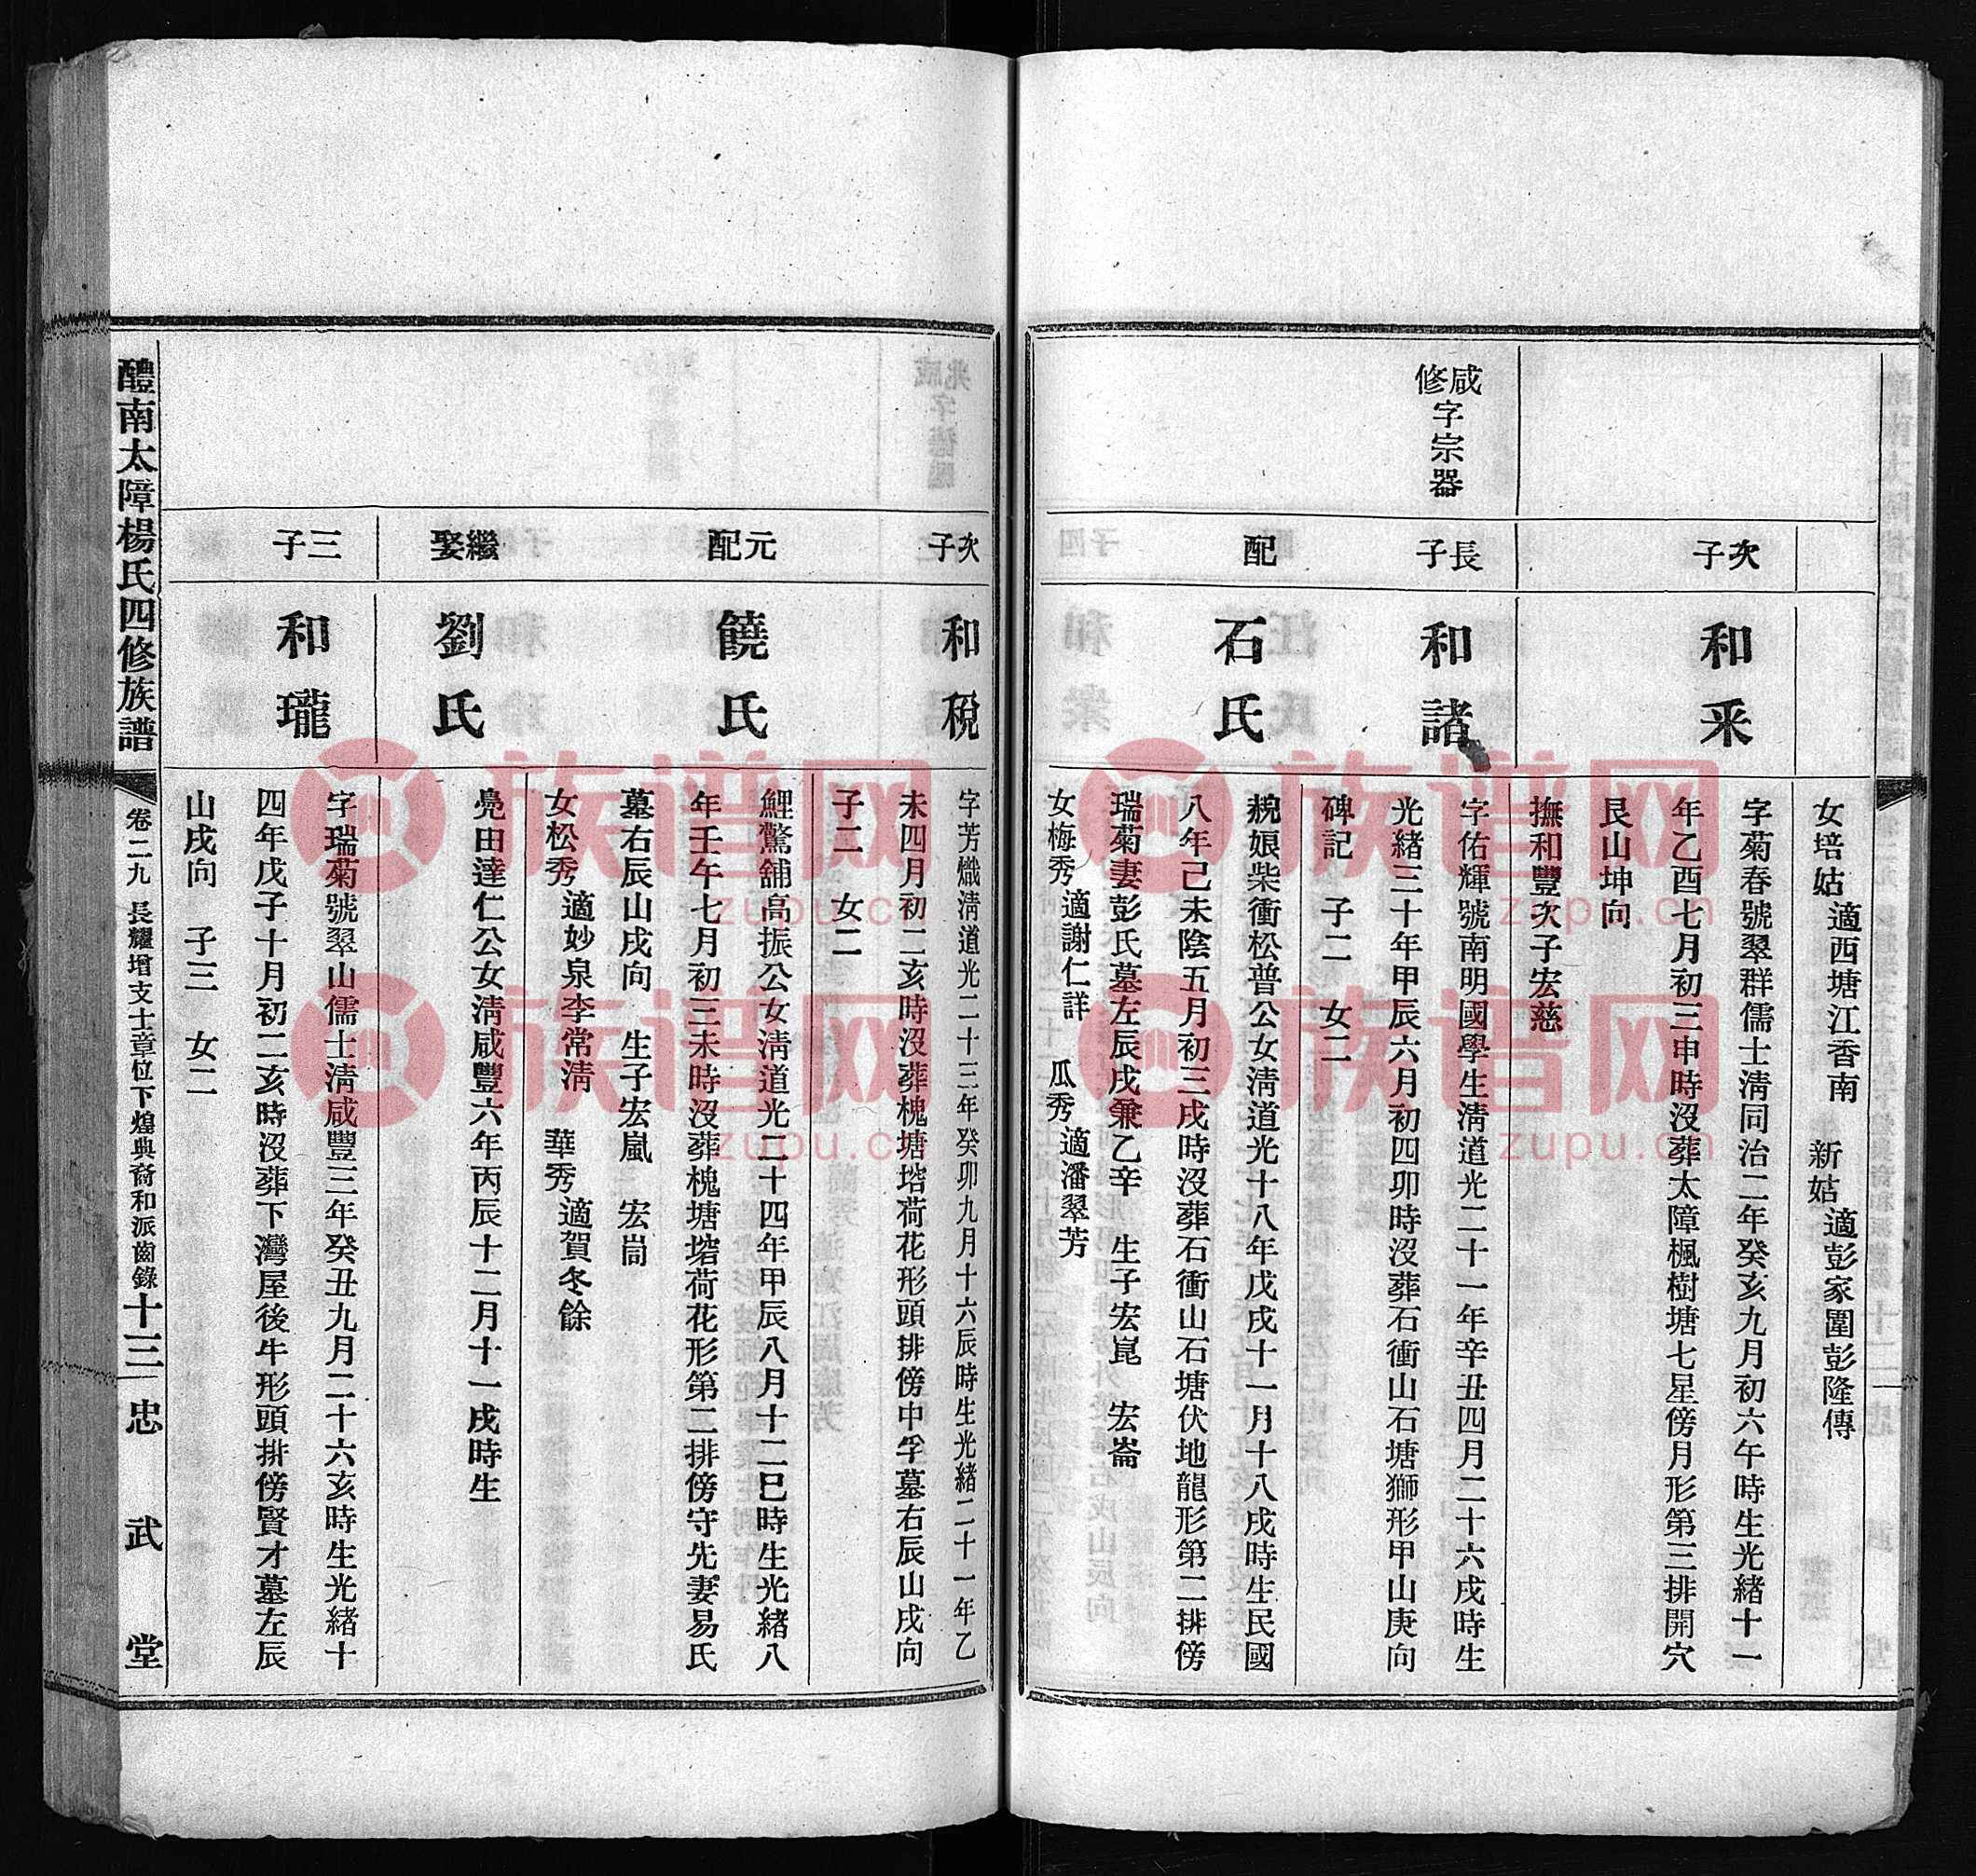 女培姑適西塘江香南　新姑適彭家圍彭隆傳
次子
和采
字菊春號翠群儒士淸同治二年癸亥九月初六午時生光緒十一
年乙酉七月初三申時沒葬太障楓樹塘七星傍月形第三排開穴
艮山坤向
撫和豐次子宏慈
咸修字宗器
長子
和諸
字佑輝號南明國學生淸道光二十一年辛丑四月二十六戌時生
光緒三十年甲辰六月初四卯時沒葬石衝山石塘獅形甲山庚向
碑記　子二　女二
配
石氏
娘柴衝松普公女淸道光十八年戊戌十一月十八戌時生民國
八年己未陰五月初三戌時沒葬石衝山石塘伏地龍形第二排傍
瑞菊妻彭氏墓左辰戌兼乙辛　生子宏崑　宏崙
女梅秀適謝仁詳　瓜秀適潘翠芳
次子
和稅
字芳熾淸道光二十三年癸卯九月十六辰時生光緒二十一年乙
未四月初二亥時沒葬槐塘塔荷花形頭排傍中孚墓右辰山戌向
子二　女二
元配
饒氏
鯉驚舖高振公女淸道光二十四年甲辰八月十二巳時生光緒八
年壬午七月初三未時沒葬槐塘塔荷花形第二排傍守先妻易氏
墓右辰山戌向　生子宏嵐　宏峝
女松秀適妙泉李常淸　華秀適賀冬餘
繼娶
劉氏
鳧田達仁公女淸咸豐六年丙辰十二月十一戌時生
三子
和瓏
字瑞菊號翠山儒士淸咸豐三年癸丑九月二十六亥時生光緒十
四年戊子十月初二亥時沒葬下灣屋後牛形頭排傍賢才墓左辰
山戌向　子三　女二
醴南太障楊氏四修族譜
卷二九　長耀增支士章位下煌典裔和派齒錄　十三　忠武堂
族谱网
zupu.cn
族谱网
zupu.cn
族谱网
zupu.cn
族谱网
zupu.cn